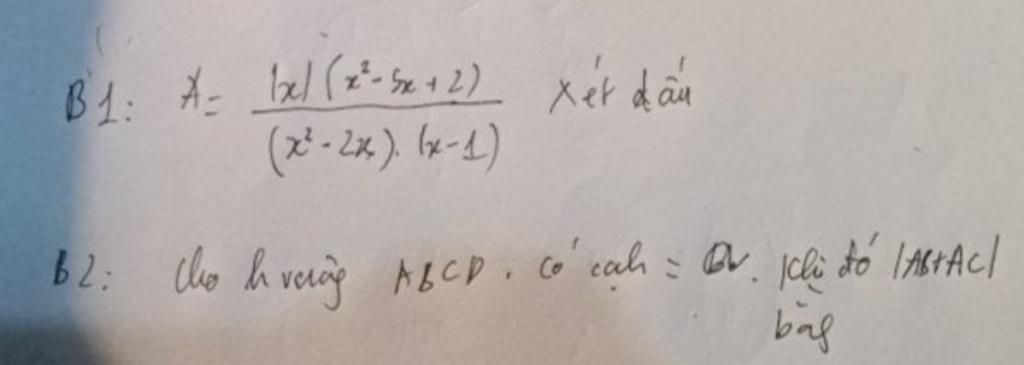 B1: A = |x|(x² - 5x + 2) / (x² - 2x).(x - 1) Xét dấu
B2: Cho h vuông ABCD. có cạnh = a. Khi đó |AB+AC|
bằng